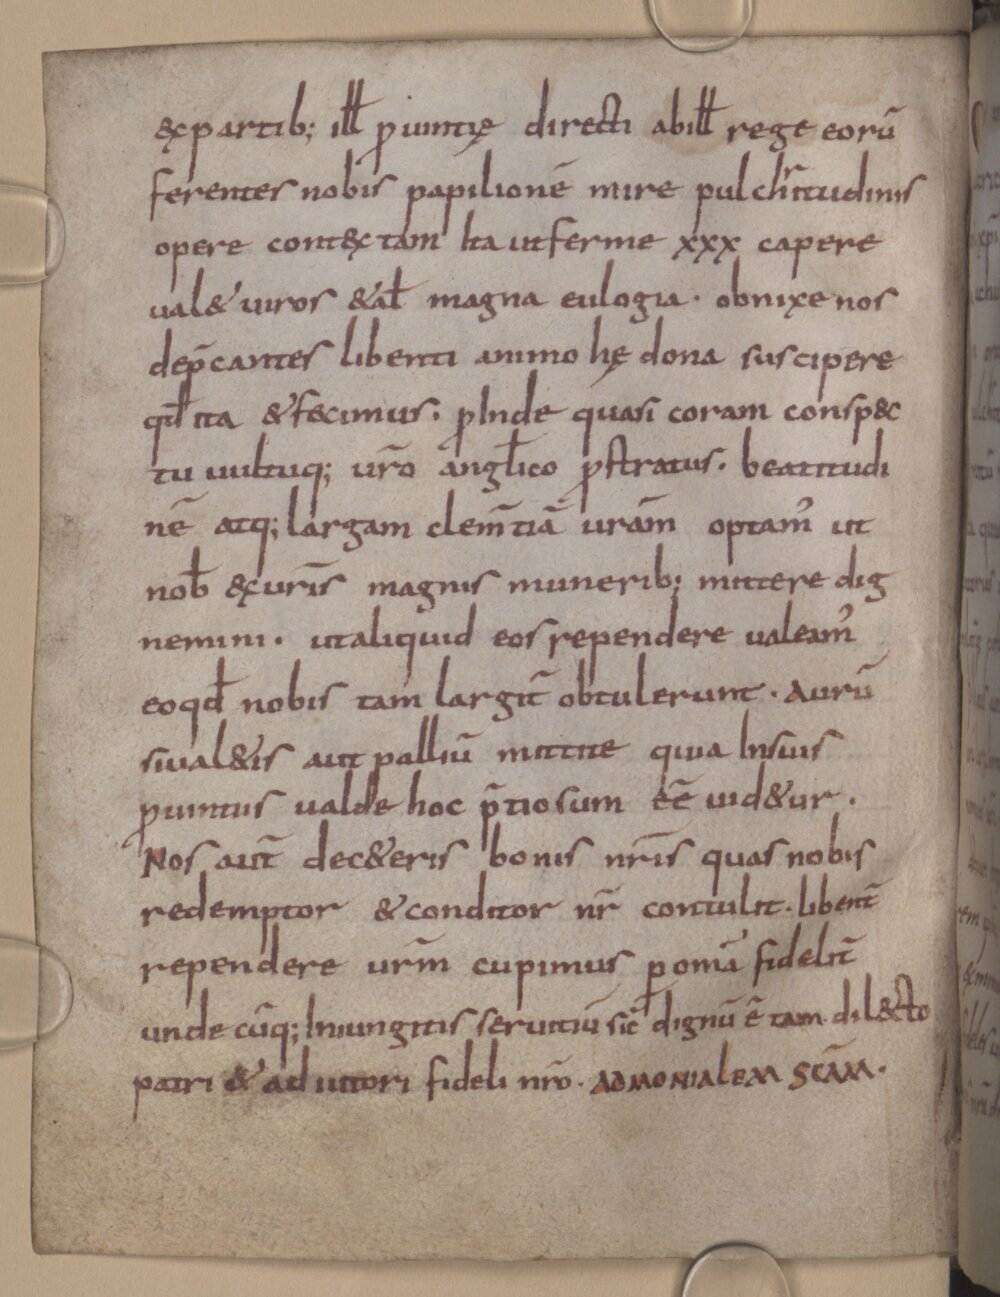 &xpartib; ill̵ ꝓuintię directi abill̵ rege eorū
ferentes nobis papilionē mire pulchritudinis
opere cont&xtam Ita utferme xxx capere
ual& uiros &al̵ magna eulogia · obnixe nos
dep̄cantes libenti animo hę dona suscipere
qđ ita &fecimus. ꝓInde quasi coram consp&c
tu uultuq; ur̄o angl̵ico ꝓstratus. beatitudi
nē atq; largam clem̄tiā uram̄ optam' ut
nob̵ &xuris̄ magnis munerib; mittere dig
nemini · utaliquid eos rependere ualeam'
eoqđ nobis tam largit̄ obtulerunt · Aurū
siual&is aut palliū mittite quia Insuis
ꝓuintiis ualde hoc p̄tiosum eē uid&ur .
Nos aut̄ dec&eris bonis nr̄is quas nobis
redemptor &conditor nr̄ contulit · libent̄
rependere urm̄ cupimus ꝑ omā fidelit̄
unde cūq; Iniungitis seruitiū sic̄ dignū ē tam dil&cto
patri & ad iutori fideli nrō · ADMONIALEM SCĀM ·